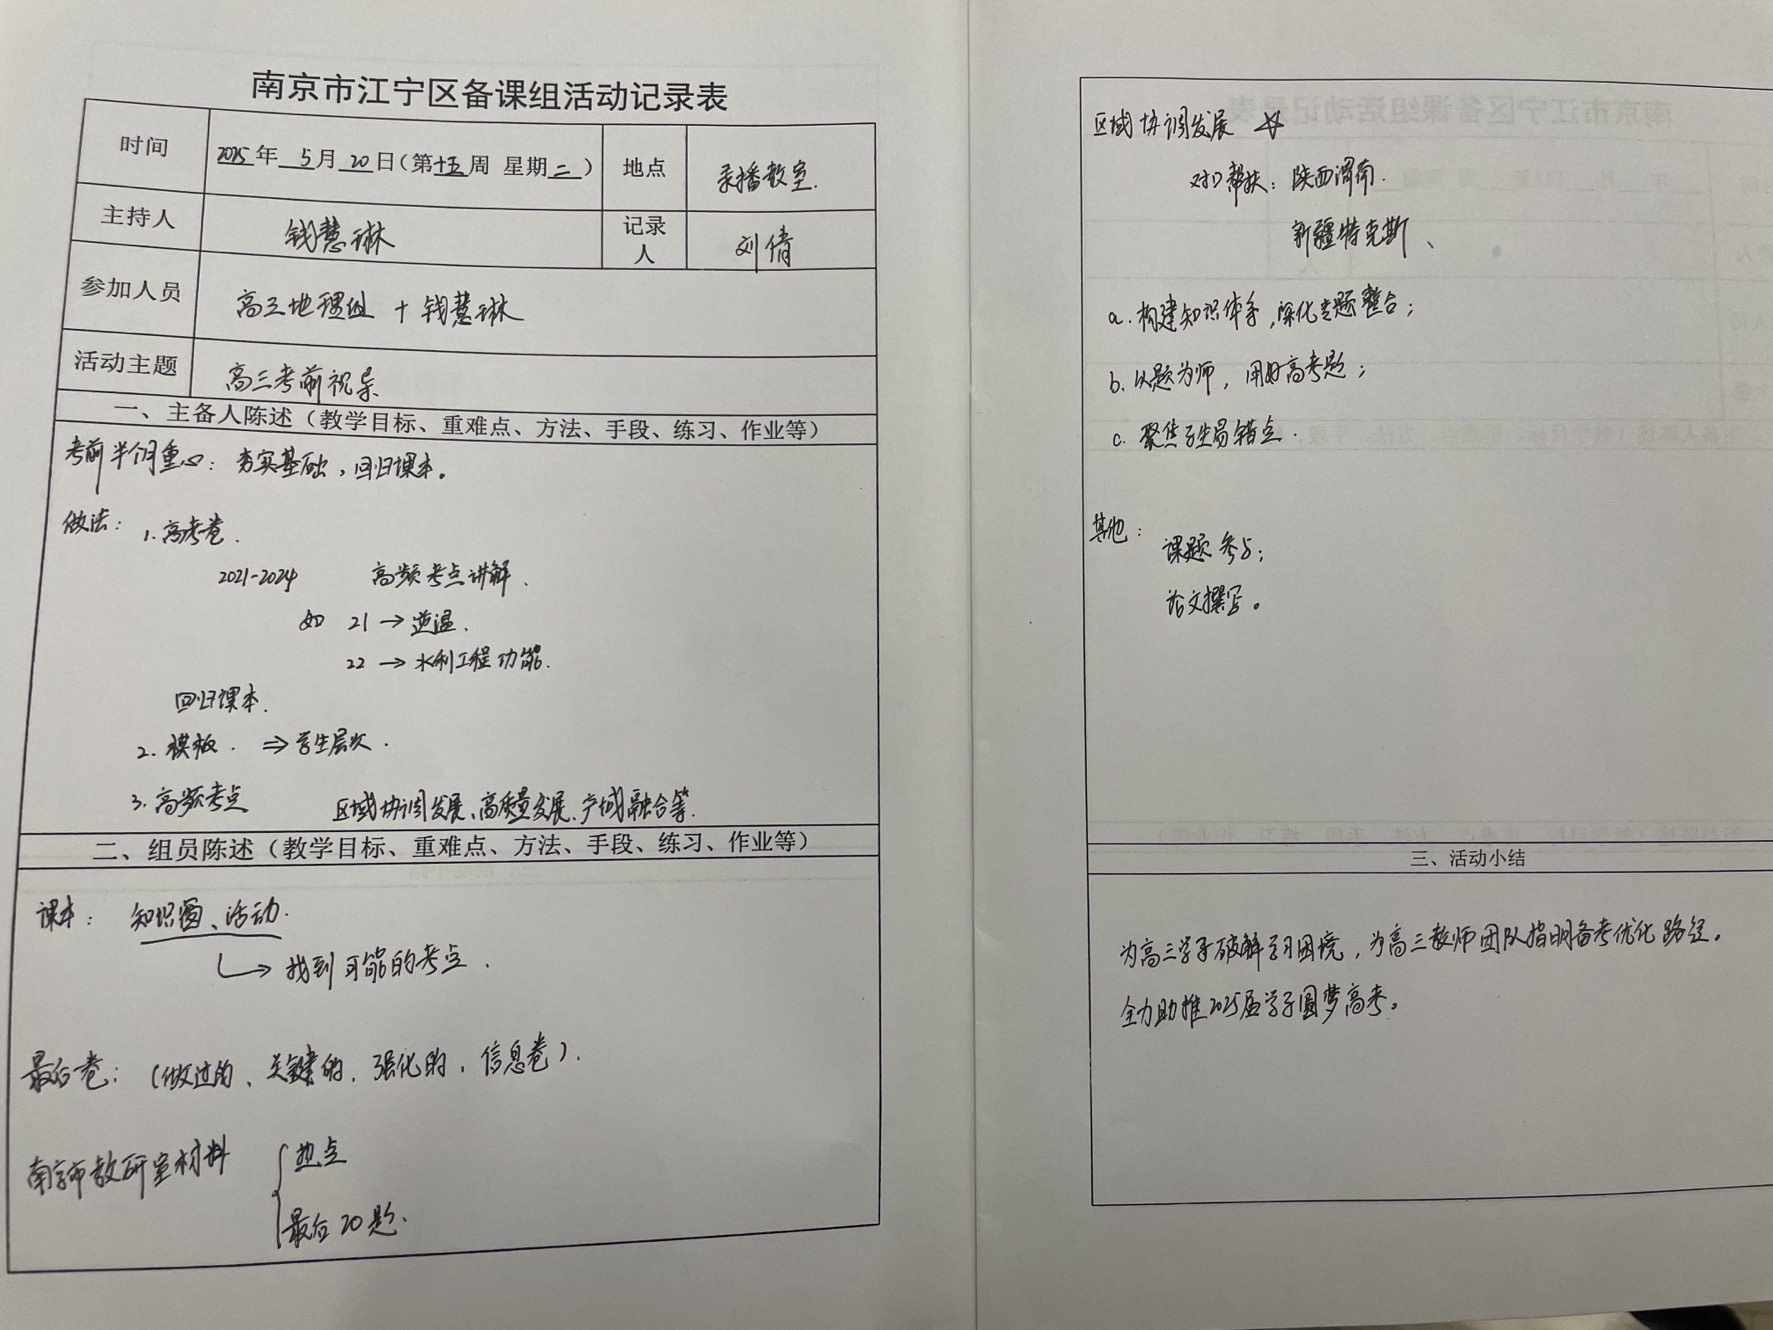 南京市江宁区备课组活动记录表
时间 2025年 5月 20日(第十五周 星期二) 地点 录播教室.
主持人 钱慧琳 记录人 刘倩
参加人员 高三地理组 + 钱慧琳
活动主题 高三考前视导
一、主备人陈述(教学目标、重难点、方法、手段、练习、作业等)
考前半个月重心: 夯实基础,回归课本。
做法: 1.高考卷.
2021-2024 高频考点讲解.
如 21→逆温.
22→水利工程功能.
回归课本.
2. 模板. ⇒学生层次.
3.高频考点 区域协调发展、高质量发展、产城融合等.
二、组员陈述(教学目标、重难点、方法、手段、练习、作业等)
课本: 知识窗、活动.
↳找到可能的考点.
最后卷:(做过的、关键的、强化的,信息卷).
南京市教研室材料 { 热点
最后20题.
区域协调发展 ☆
对口帮扶: 陕西渭南.
新疆特克斯、
a.构建知识体系,深化专题整合;
b.以题为师,用好高考题;
c.聚焦学生易错点.
其他: 课题参与;
论文撰写。
三、活动小结
为高三学子破解学习困境,为高三教师团队指明备考优化路径。
全力助推2025届学子圆梦高考。